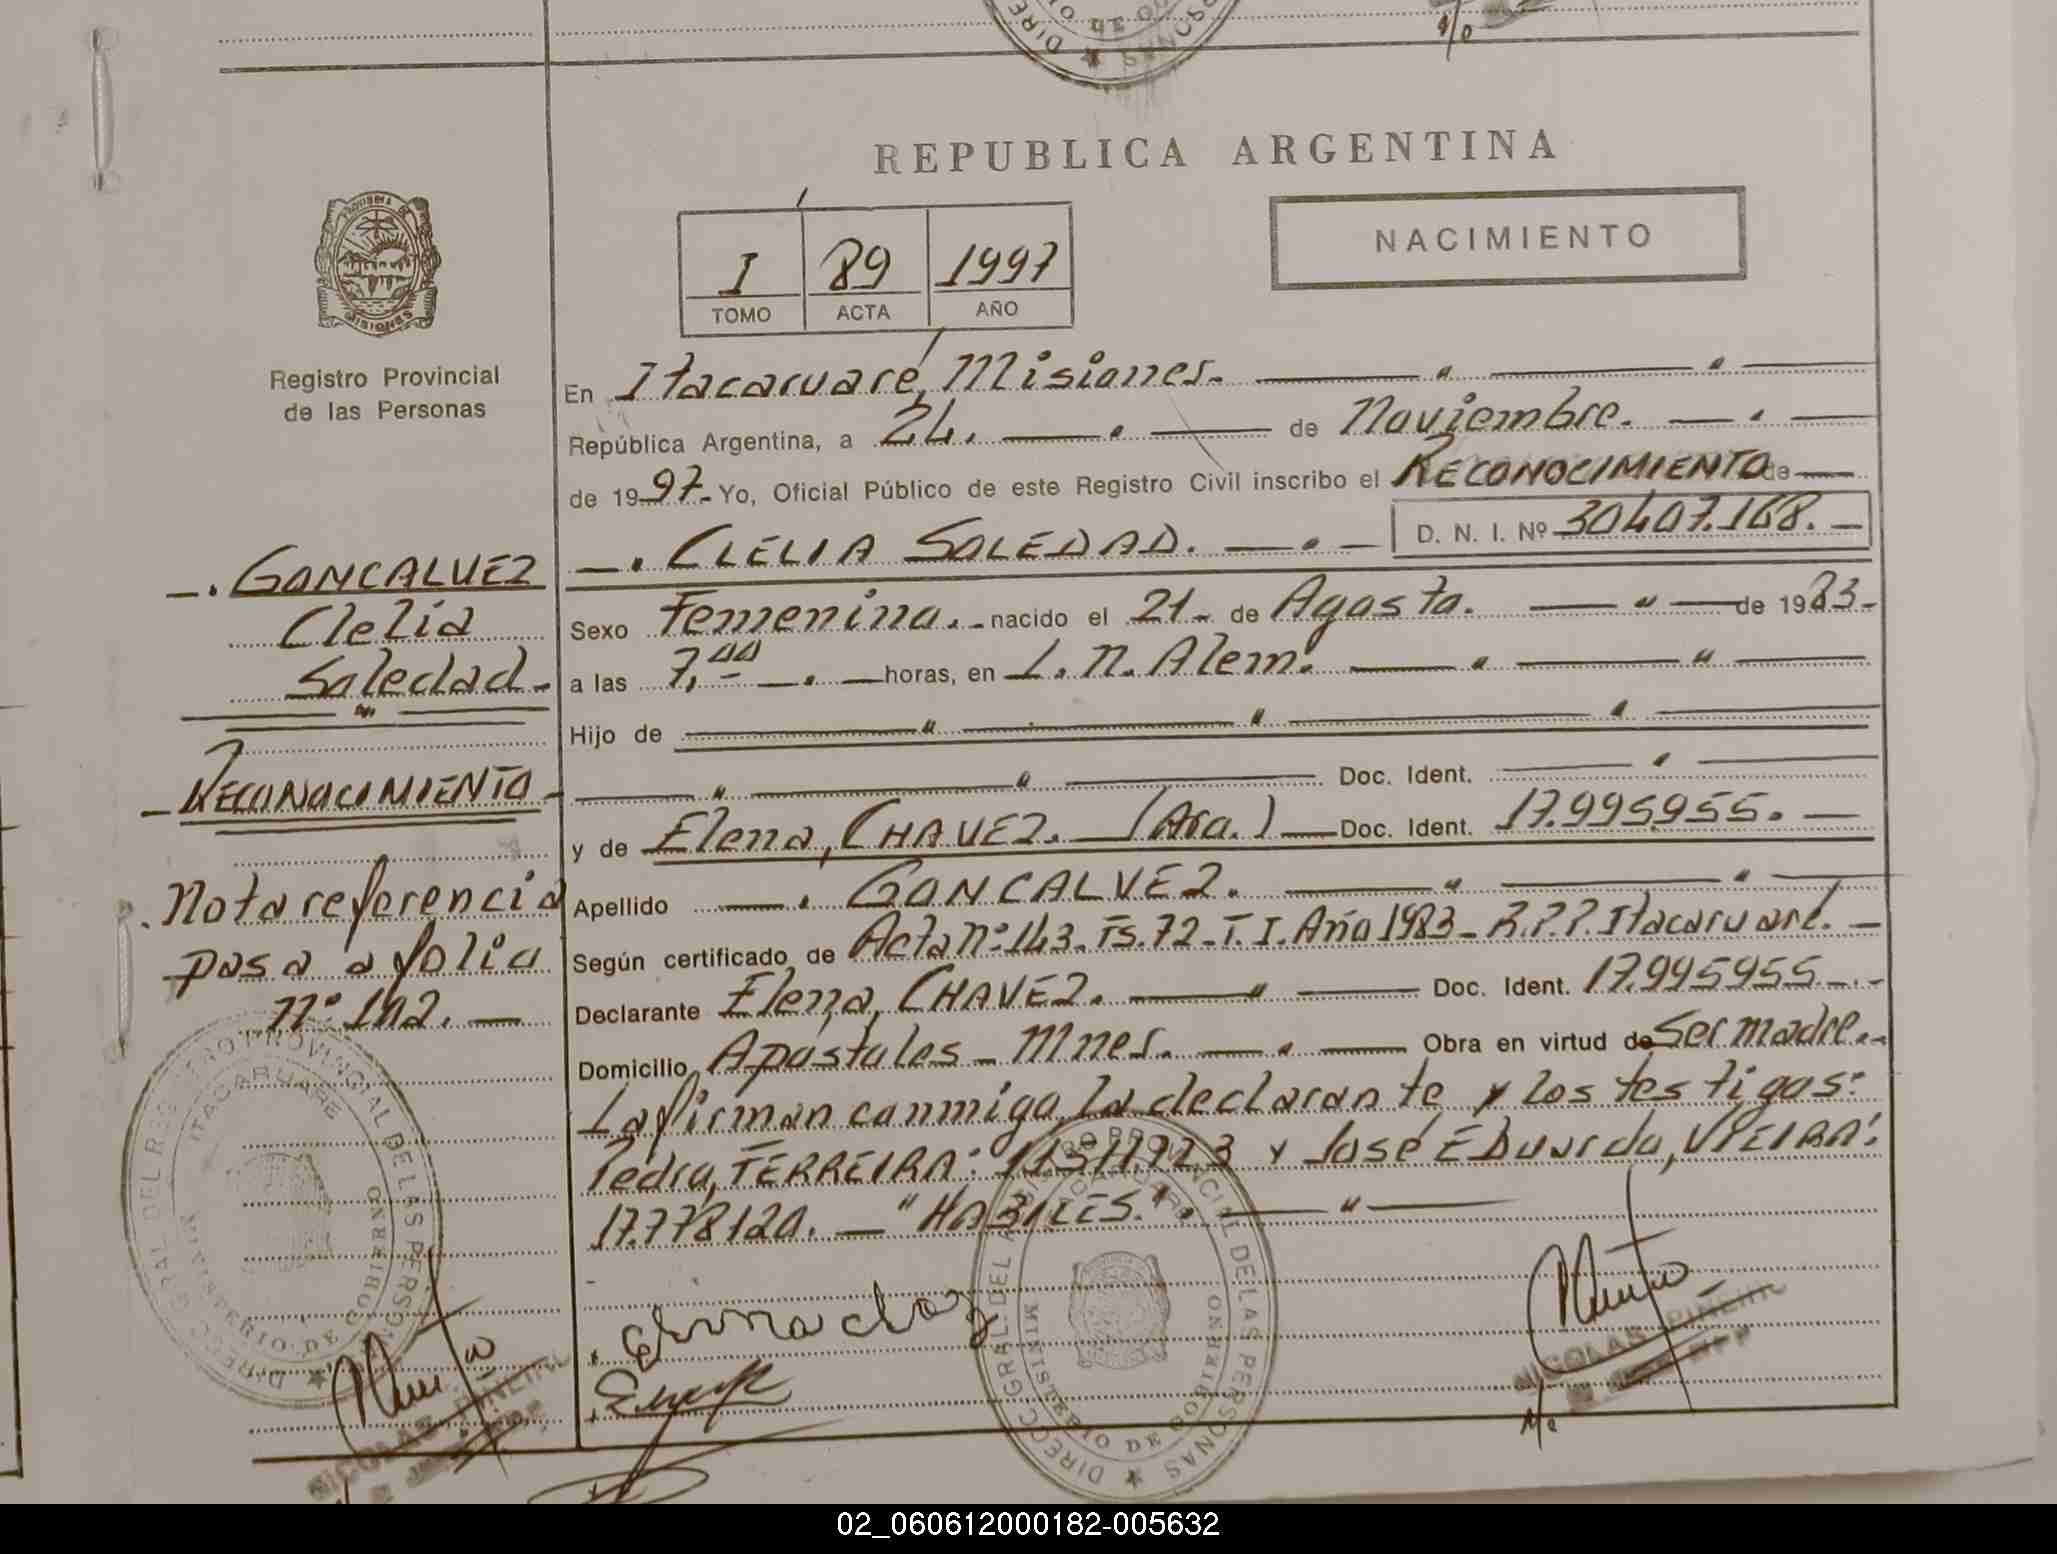 REPUBLICA ARGENTINA
NACIMIENTO
I 89 1997
TOMO ACTA AÑO
Registro Provincial
de las Personas
En Itacaruaré, Misiones.
República Argentina, a 24. de Noviembre.
de 1997.- Yo, Oficial Público de este Registro Civil inscribo el RECONOCIMIENTO de
D. N. I. Nº 30407.168.-
CLELIA SOLEDAD.
Sexo Femenino. nacido el 21- de Agosto. de 1983-
a las 7,00 horas, en L. N. Alem.
Hijo de
Doc. Ident.
y de Elena, CHAVEZ. (Arg.) Doc. Ident. 17.995955.
Apellido GONCALVEZ.
Según certificado de Acta Nº 143- Fs. 72- T. I. Año 1983- R.P.P. Itacaruaré.
Declarante Elena, CHAVEZ. Doc. Ident. 17.995955
Domicilio Apóstoles - Mnes. Obra en virtud de Ser madre.
La firman conmigo, la declarante y los testigos:
Pedro, FERREIRA: y José Eduardo, VIEIRA:
17.778120. "HABILES."
GONCALVEZ
Clelia
Soledad
RECONOCIMIENTO
Nota referencia
pasa a folio
Nº 142.
DIRECC GRAL DEL REGISTRO PROVINCIAL DE LAS PERSONAS
ITACARUARE
MINISTERIO DE GOBIERNO
DIRECC GRAL DEL REGISTRO PROVINCIAL DE LAS PERSONAS
ITACARUARE
MINISTERIO DE GOBIERNO
NICOLAS PINEIRO
NICOLAS PINEIRO
02_060612000182-005632